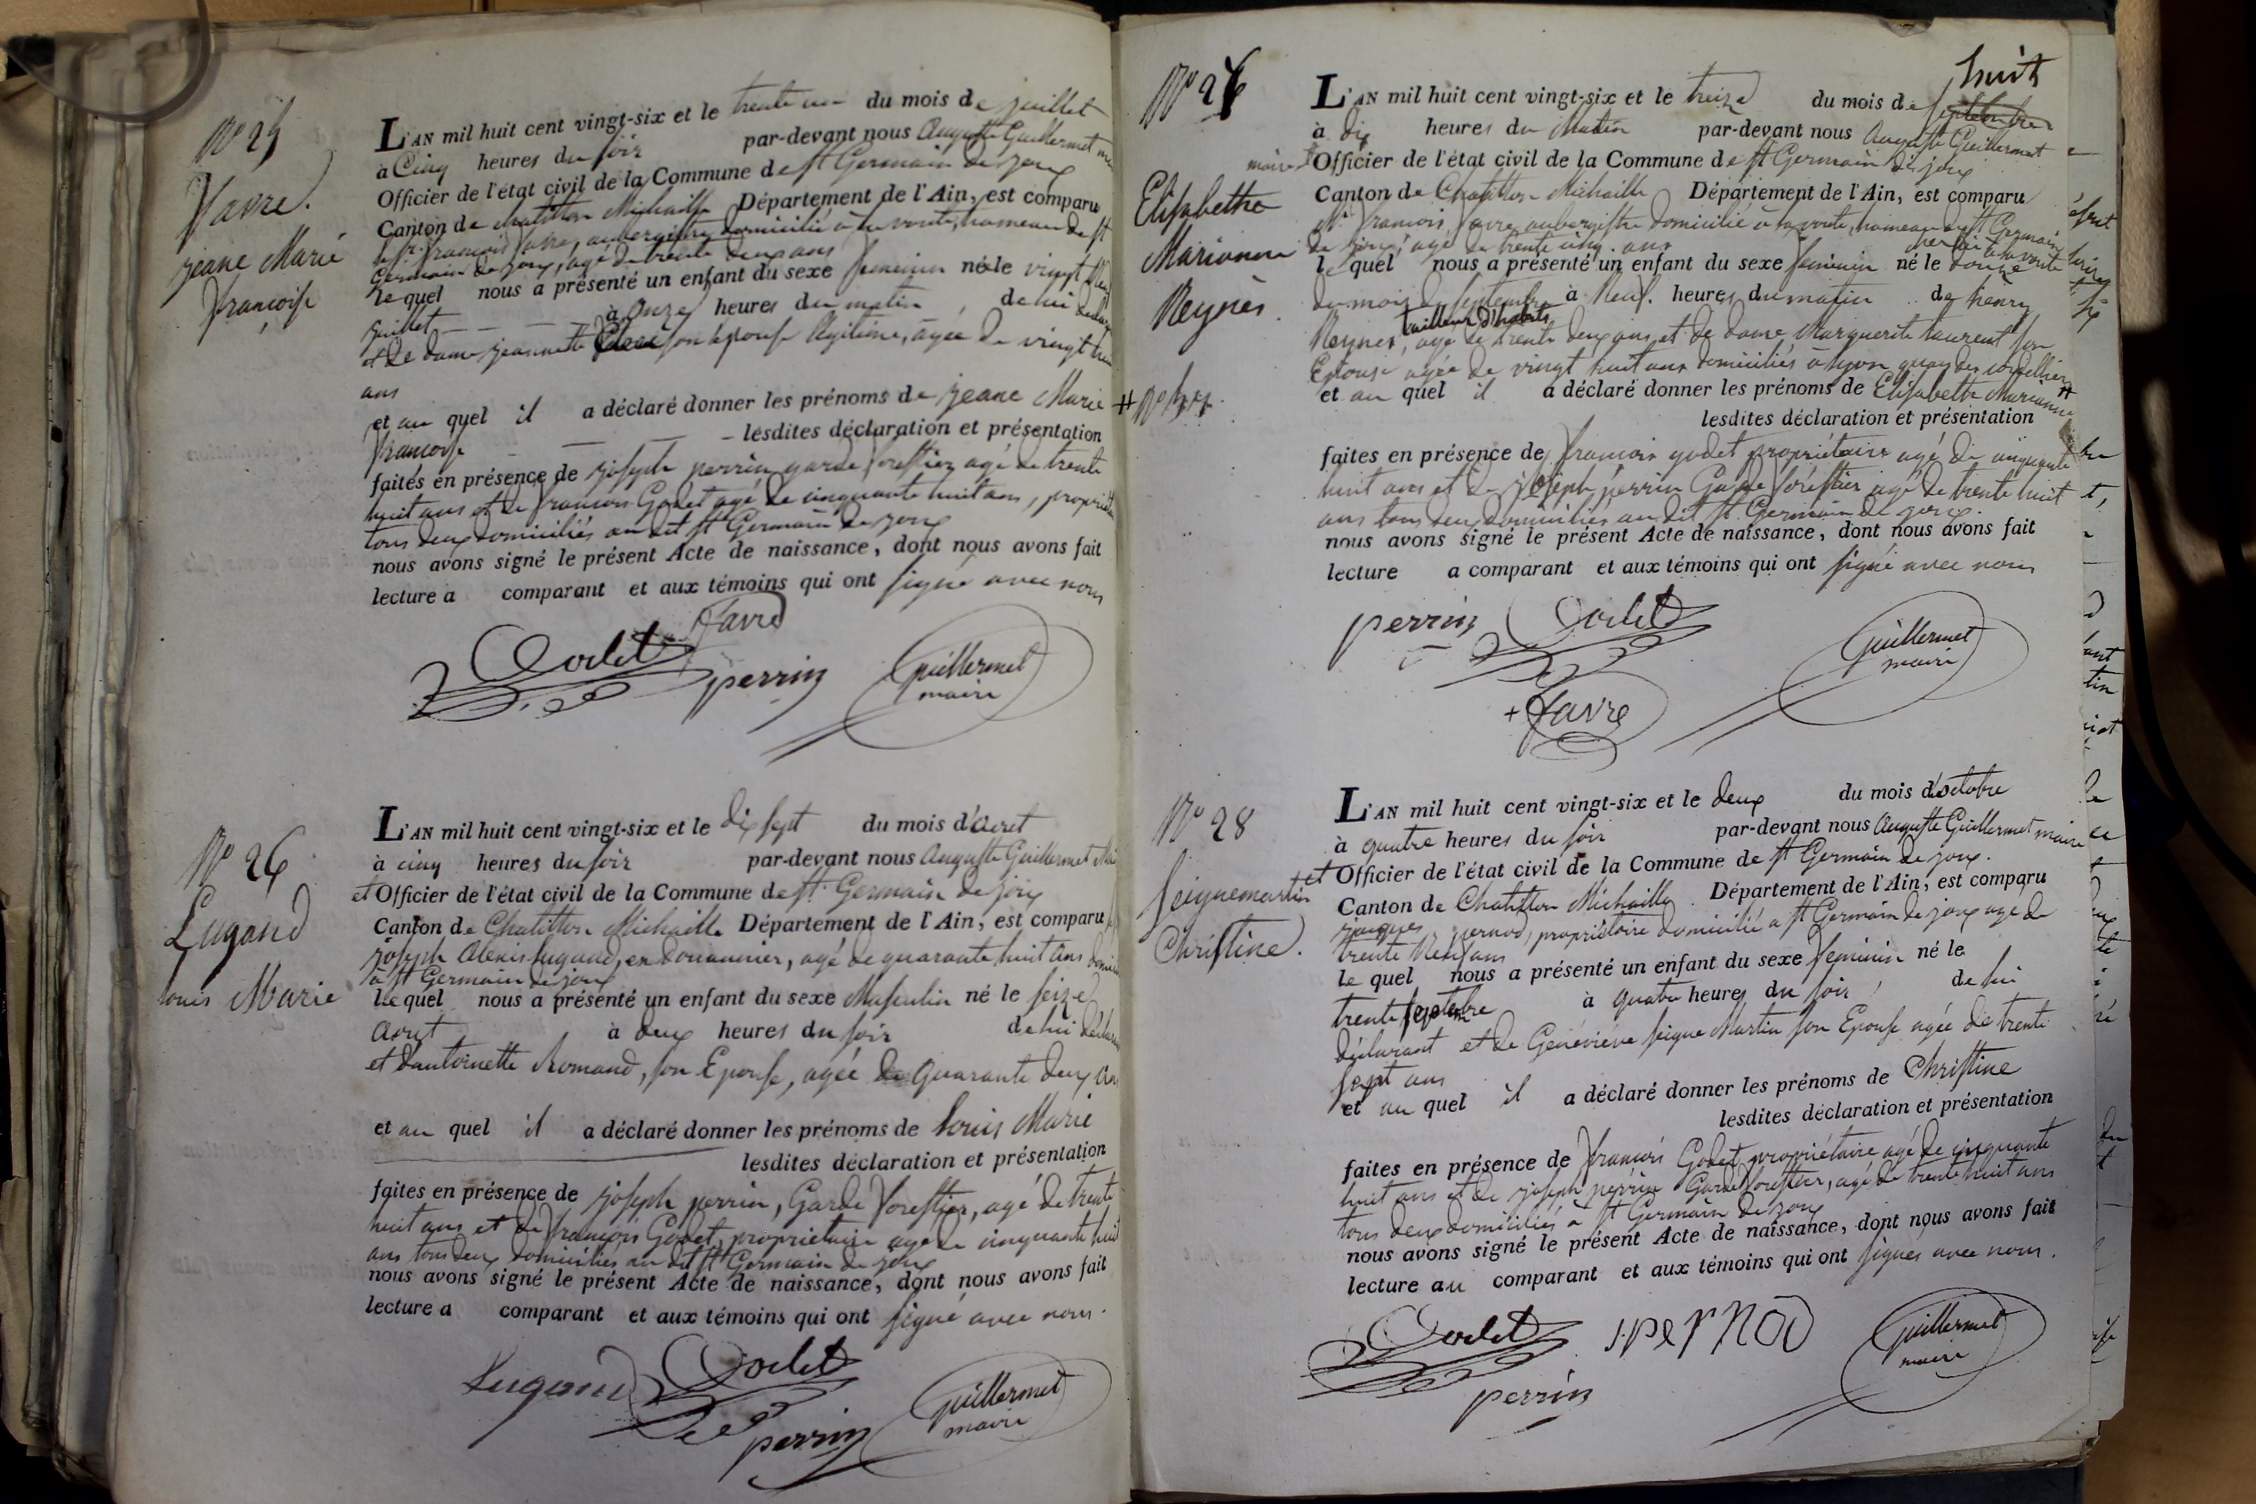 N° 25
Favre.
jeane Marie
françoise
L'AN mil huit cent vingt-six et le trente un du mois de juillet
à Cinq heures du soir par-devant nous Auguste Guillermet
Officier de l'état civil de la Commune de St Germain de joux
Canton de Chatillon Michaille Département de l'Ain, est comparu
le Sr. françois favre, aubergiste domicilié à la voute, hameau de St
Germain de joux, agé de trente deux ans
le quel nous a présenté un enfant du sexe feminin né le vingt
juillet à onze heures du matin de lui
et de dame jeannette son épouse légitime, agée de vingt
ans
et au quel il a déclaré donner les prénoms de jeane Marie
françoise lesdites déclaration et présentation
faites en présence de joseph perrin garde forestier agé de trente
huit ans et de françois Godet agé de cinquante huit ans,
tous deux domiciliés au dit St Germain de joux
nous avons signé le présent Acte de naissance, dont nous avons fait
lecture a comparant et aux témoins qui ont signé avec nous
favre
Godet perrin Guillermet
maire
N° 26
Lugand
louis Marie
L'AN mil huit cent vingt-six et le dix sept du mois d'aout
à cinq heures du soir par-devant nous Auguste Guillermet
et Officier de l'état civil de la Commune de St. Germain de joux
Canton de Chatillon Michaille Département de l'Ain, est comparu
joseph Alexis Lugand, ex douannier, agé de quarante huit ans
à St Germain de joux
le quel nous a présenté un enfant du sexe Masculin né le seize
aout à deux heures du soir de lui
et d'antoinette Romand, son Epouse, agée de quarante deux ans
et au quel il a déclaré donner les prénoms de louis Marie
lesdites déclaration et présentation
faites en présence de joseph perrin, Garde forestier, agé de trente
huit ans et de françois Godet, propriétaire agé de cinquante huit
ans tous deux domiciliés au dit St Germain de joux
nous avons signé le présent Acte de naissance, dont nous avons fait
lecture a comparant et aux témoins qui ont signé avec nous.
Lugand Godet
perrin Guillermet
maire
N° 27
Elisabethe
Marianne
Reynès.
L'AN mil huit cent vingt-six et le treize du mois de septembre huit
à dix heures du Matin par-devant nous Auguste Guillermet
maire Officier de l'état civil de la Commune de St Germain de joux
Canton de Chatillon Michaille Département de l'Ain, est comparu
Sr. françois favre aubergiste domicilié à la voute, hameau de St Germain
de joux, agé de trente cinq ans
le quel nous a présenté un enfant du sexe féminin né le chez lui à la voute douze
du mois de septembre à Neuf heures du matin de henry
Reynès, tailleur d'habits agé de trente deux ans et de dame Marguerite laurent son
Epouse agée de vingt huit ans domiciliés à lyon quay des cordelliers
et au quel il a déclaré donner les prénoms de Elisabethe Marianne
lesdites déclaration et présentation
faites en présence de françois godet propriétaire agé de cinquante
huit ans et de joseph perrin Garde forestier agé de trente huit
ans tous deux domiciliés au dit St Germain de joux.
nous avons signé le présent Acte de naissance, dont nous avons fait
lecture a comparant et aux témoins qui ont signé avec nous
perrin Godet Guillermet
maire
+ favre
N° 28
Seignemartin
Christine.
L'AN mil huit cent vingt-six et le deux du mois d'octobre
à quatre heures du soir par-devant nous Auguste Guillermet maire
et Officier de l'état civil de la Commune de St Germain de joux.
Canton de Chatillon Michaille. Département de l'Ain, est comparu
jacques pernod, propriétaire domicilié à St Germain de joux agé de
trente Neuf ans
le quel nous a présenté un enfant du sexe feminin né le
trente septembre à quatre heures du soir, de lui
déclarant et de Généviève seigne Martin son Epouse agée de trente
sept ans
et au quel il a déclaré donner les prénoms de Christine
lesdites déclaration et présentation
faites en présence de françois Godet propriétaire agé de cinquante
huit ans et de joseph perrin Garde forestier, agé de trente huit ans
tous deux domiciliés à St Germain de joux
nous avons signé le présent Acte de naissance, dont nous avons fait
lecture au comparant et aux témoins qui ont signés avec nous.
Godet j. perNOD Guillermet
maire
perrin